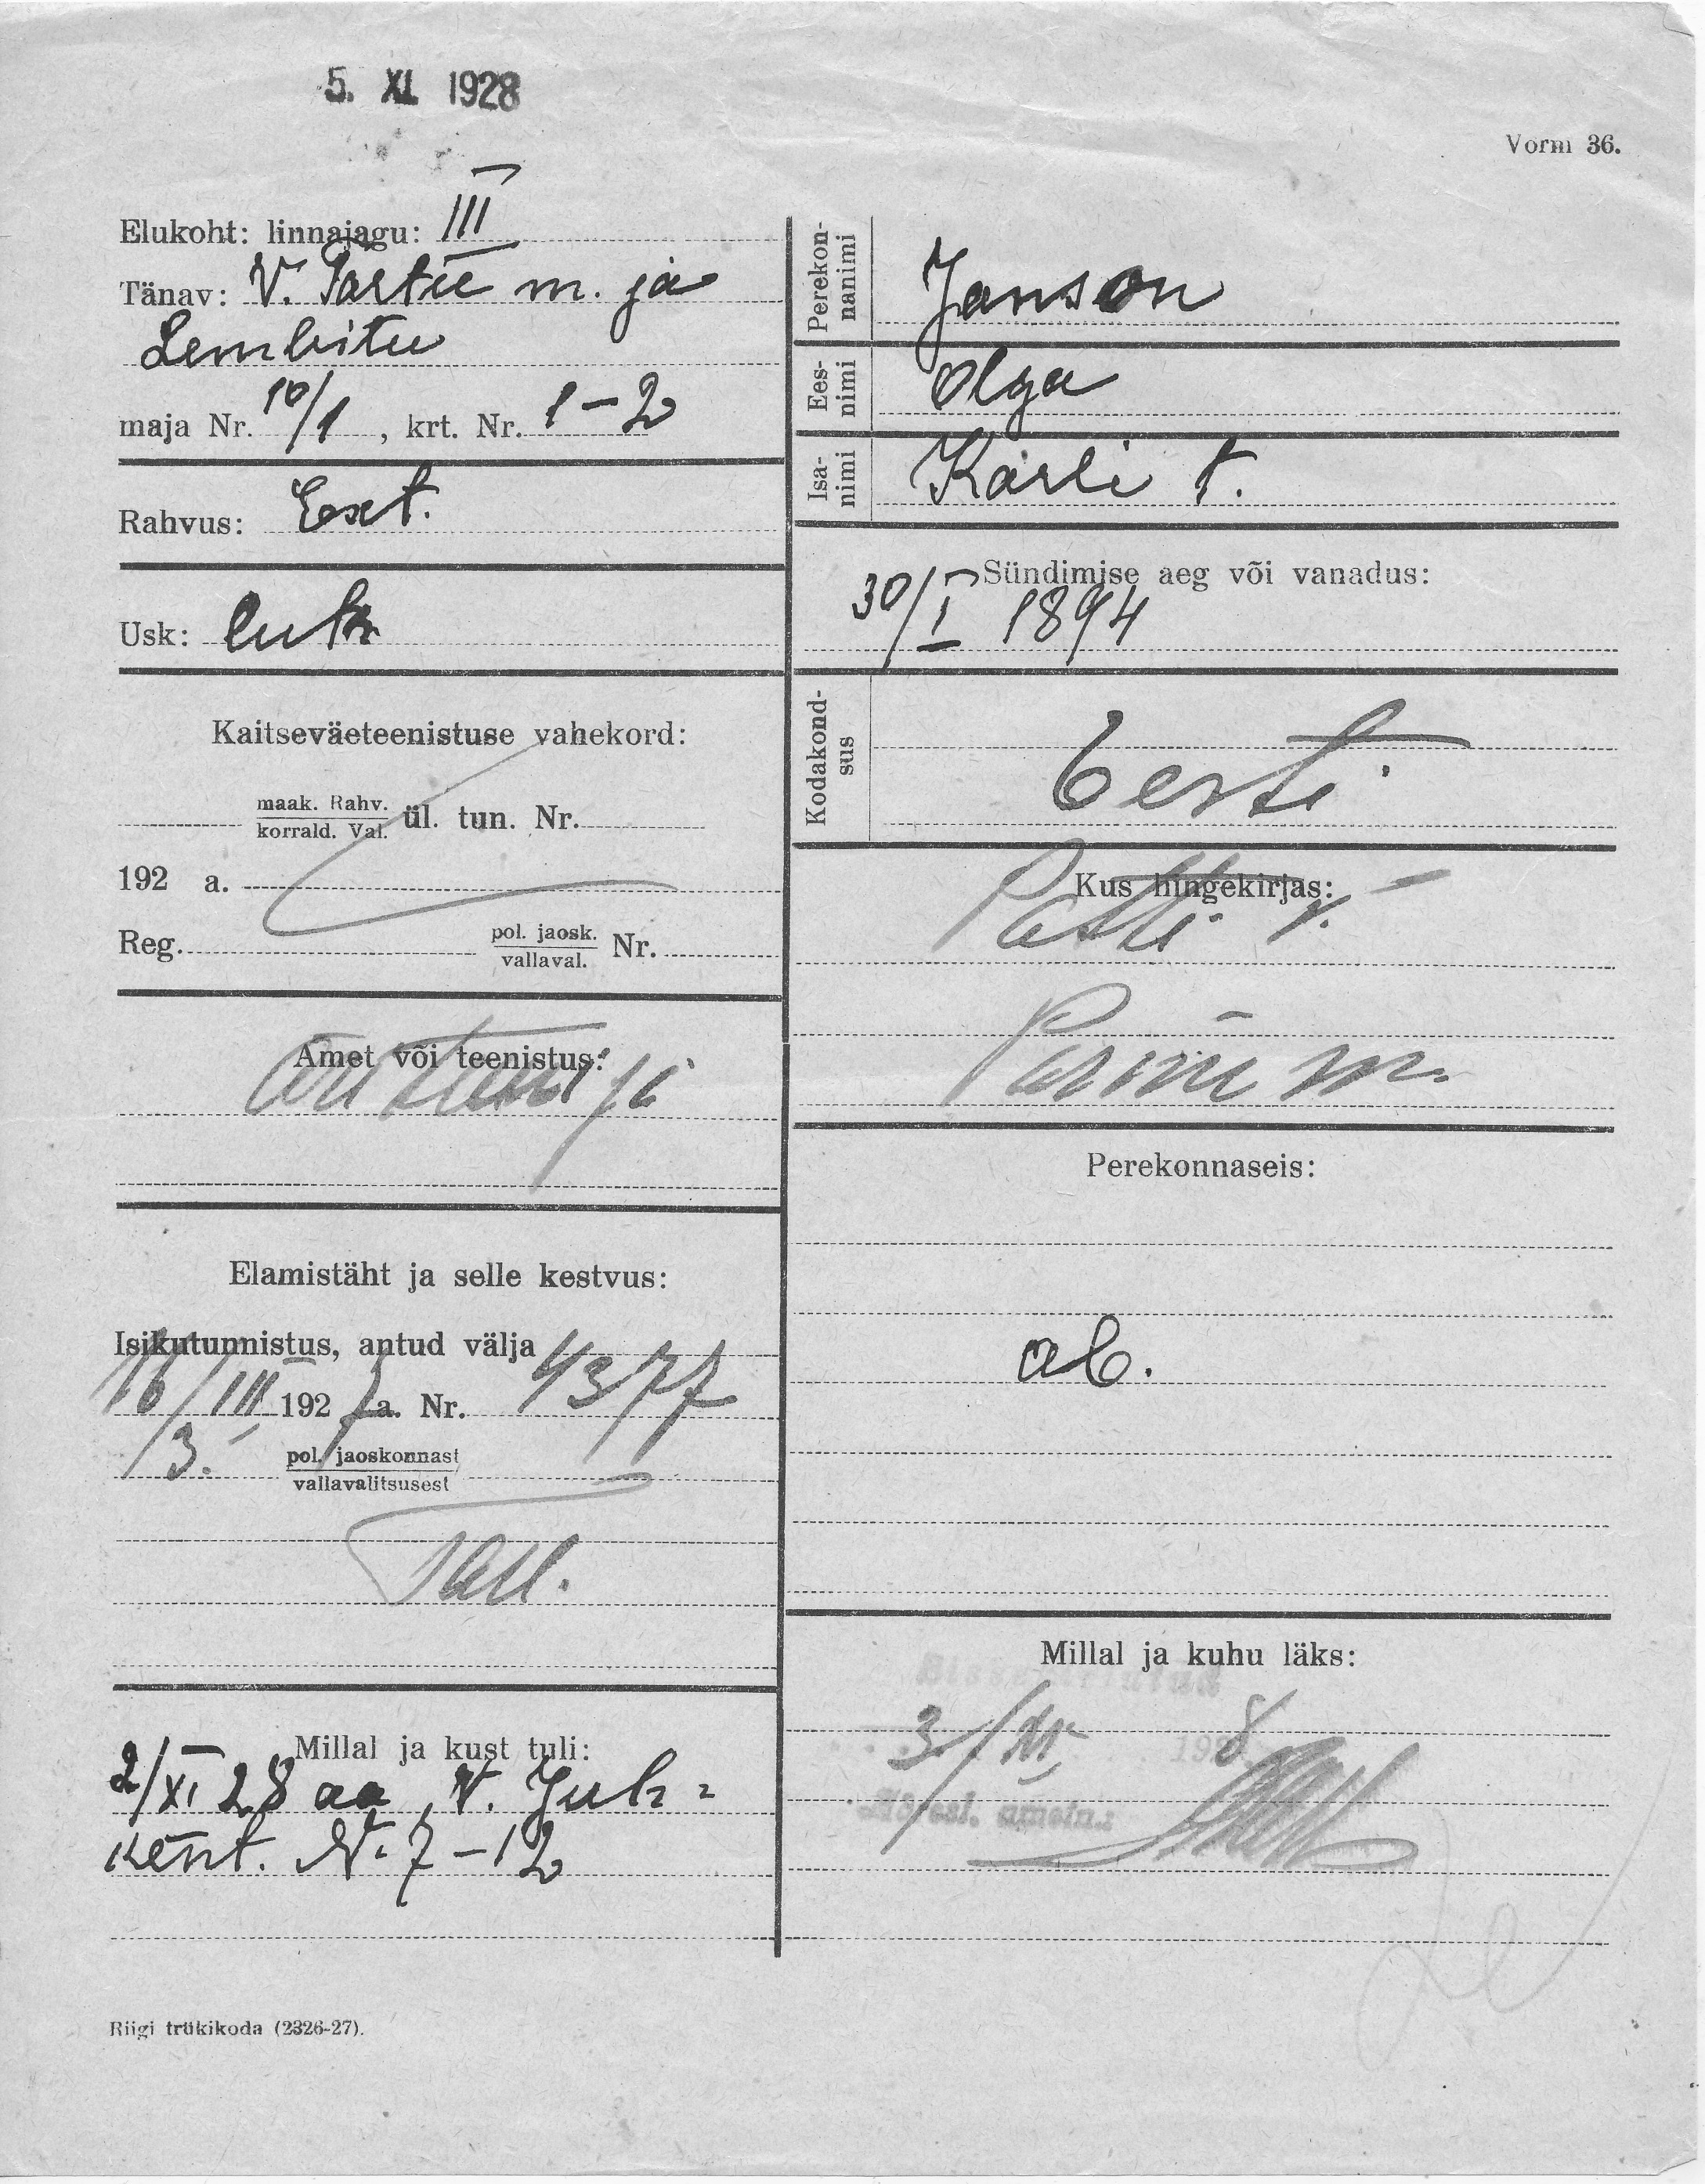 5. XI. 1928
Vorm 36.
Elukoht: linnajagu: III
Tänav: V. Tartu m. ja
Lembitu
maja Nr. 10/1, krt. Nr. 1-2
Rahvus: Eest.
Usk: luth
Kaitseväeteenistuse vahekord:
maak. Rahv.
korrald. Val. ül. tun. Nr.
192 a.
Reg. pol. jaosk. Nr.
vallaval.
Amet või teenistus:
Elamistäht ja selle kestvus:
Isikutunnistus, antud välja
16/III 1927 a. Nr. 4377
3. pol. jaoskonnast
vallavalitsusest
Tall.
Millal ja kust tuli:
2/XI 28 aa, V. Juh-
kent. Nr 7-12
Riigi trükikoda (2326-27).
Perekon-
nanimi
Janson
Ees-
nimi
Olga
Isa-
nimi
Karli t.
Sündimise aeg või vanadus:
30/I 1894
Kodakond-
sus
Eesti
Kus hingekirjas:
v.
Pärnu m.
Perekonnaseis:
ab.
Millal ja kuhu läks:
3/XI 1928
ametn.: